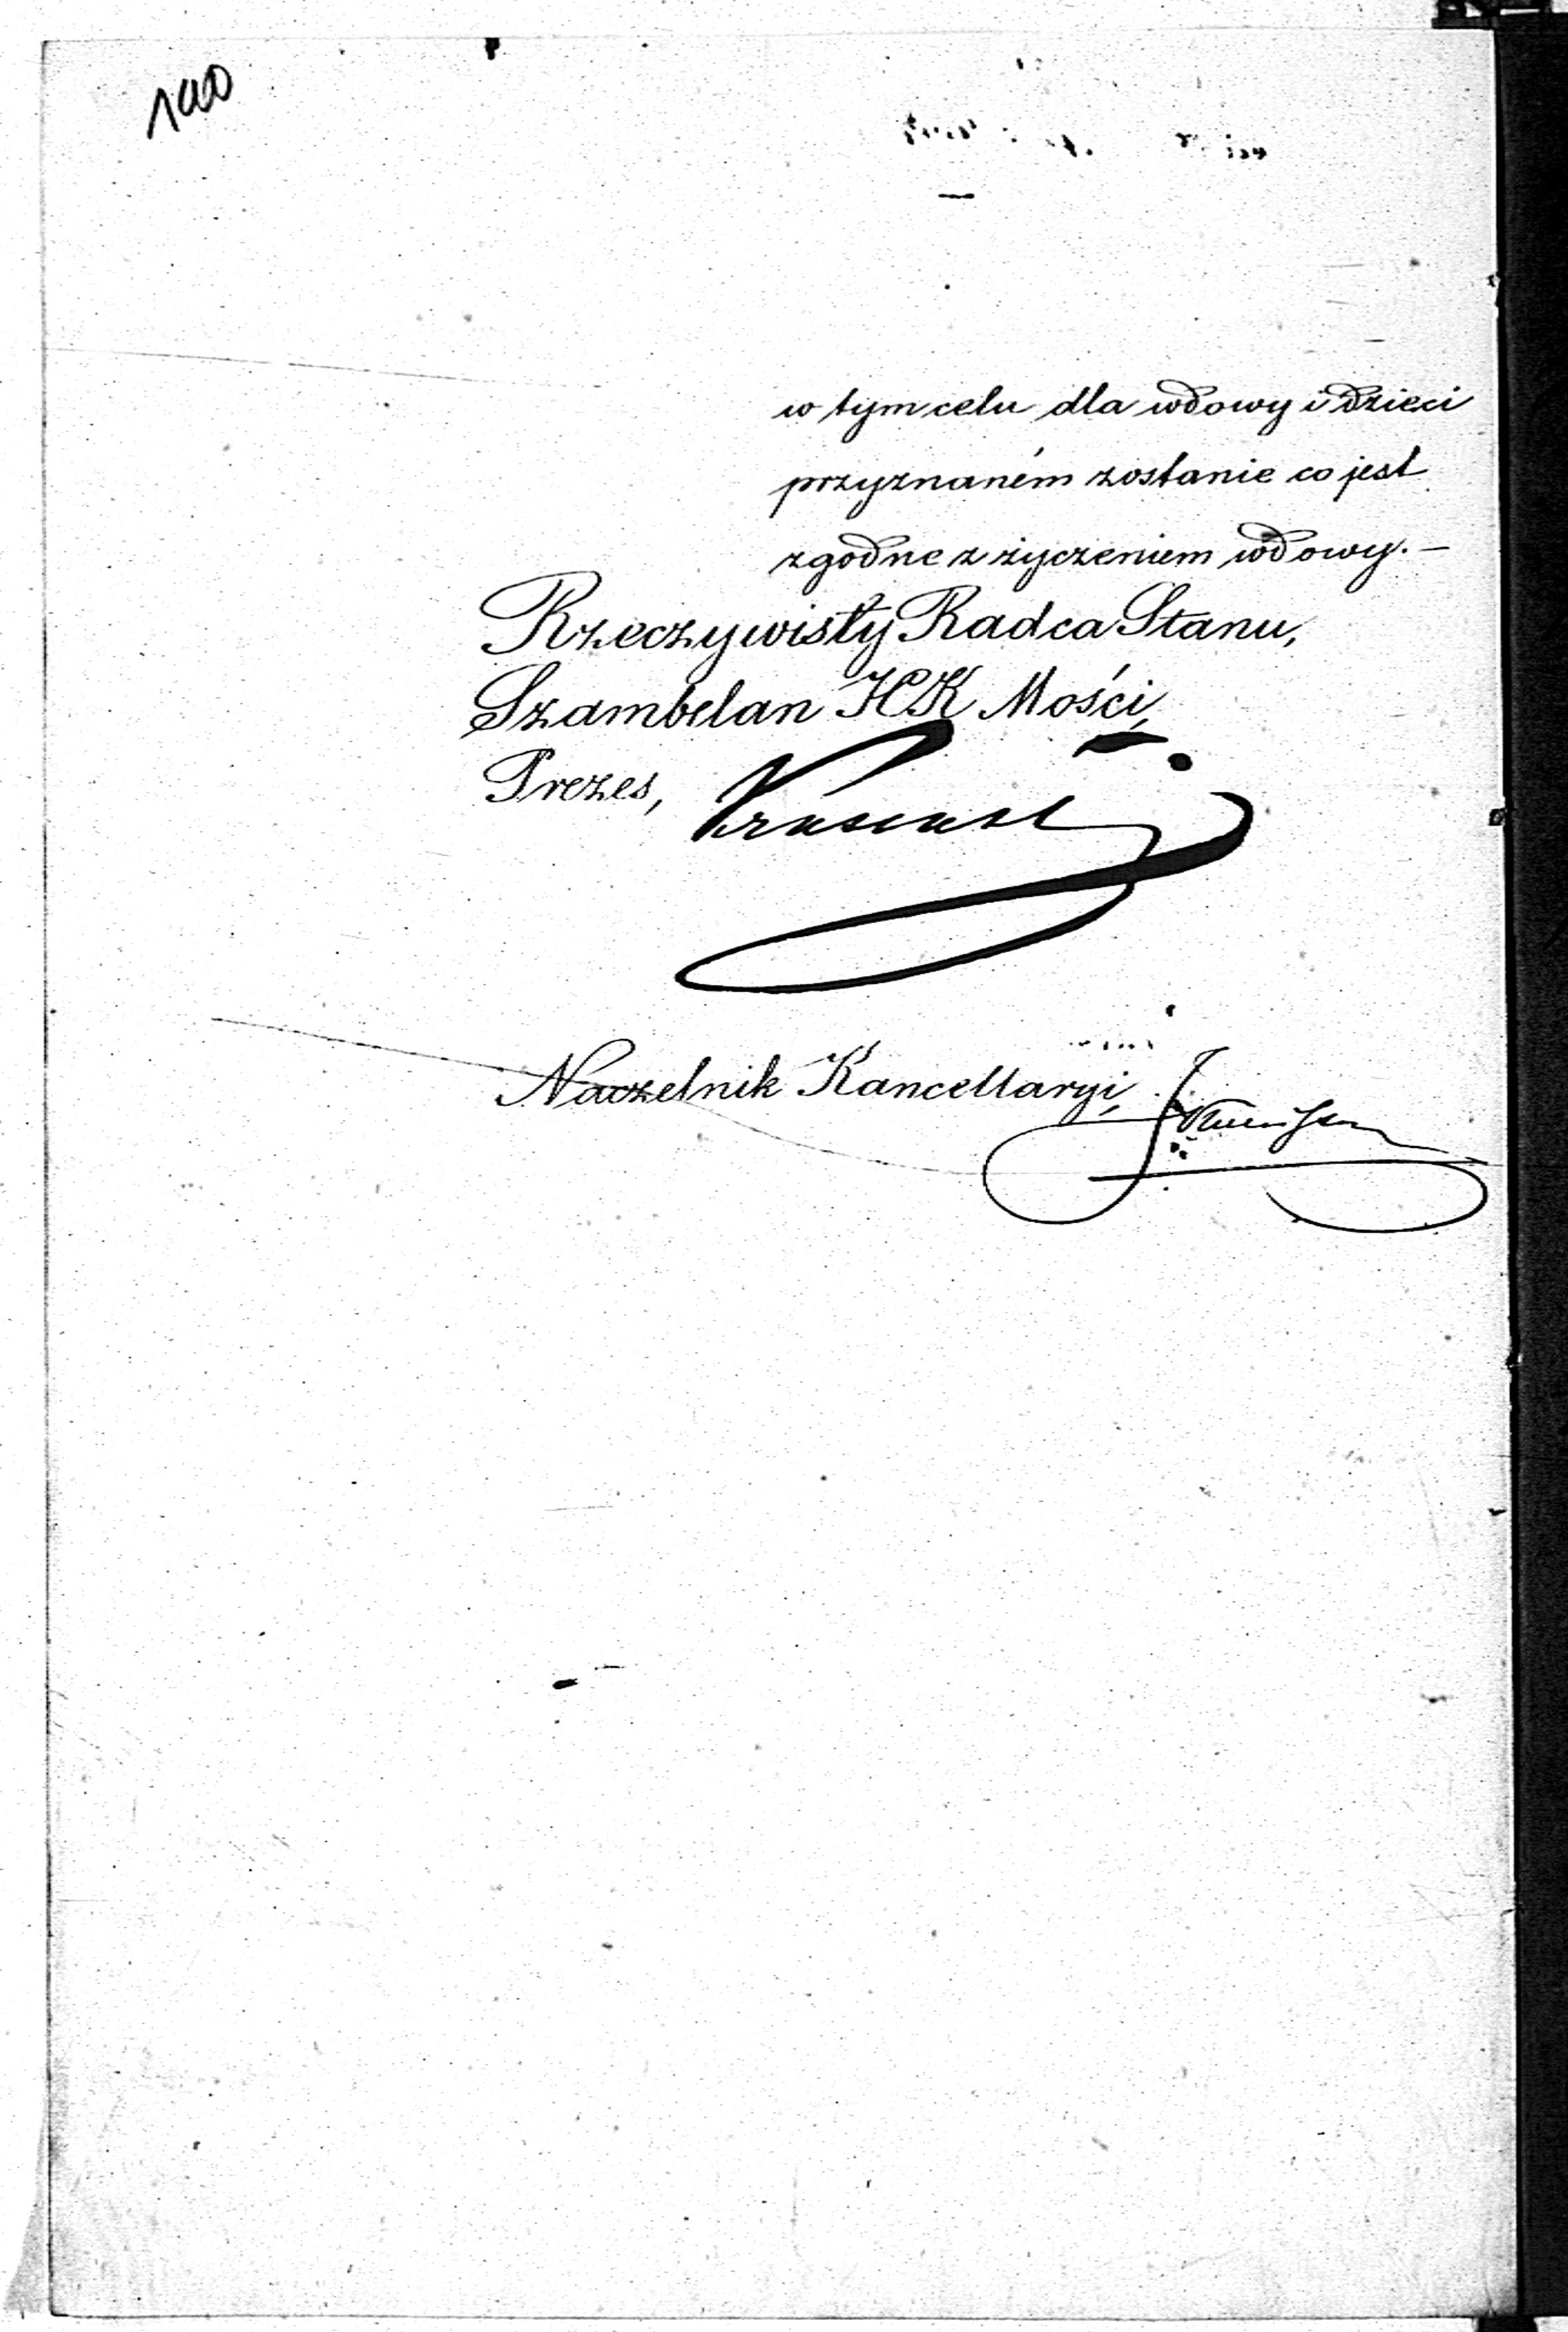 100
w tym celu dla wdowy i dzieci
przyznaném zostanie co jest
zgodne z życzeniem wdowy. —
Rzeczywisty Radca Stanu,
Szambelan JCK Mości,
Prezes,
Naczelnik Kancellaryi,